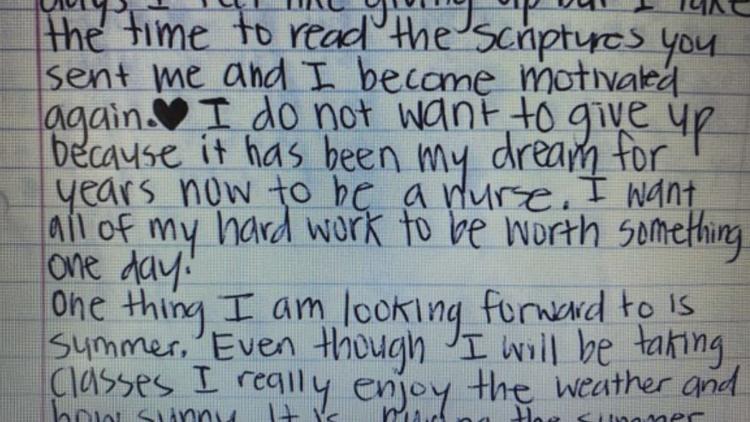 days I feel like giving up but I take
the time to read the scriptures you
sent me and I become motivated
again.♥ I do not want to give up
because it has been my dream for
years now to be a nurse. I want
all of my hard work to be worth something
one day.
One thing I am looking forward to is
summer. Even though I will be taking
classes I really enjoy the weather and
how sunny it is during the summer